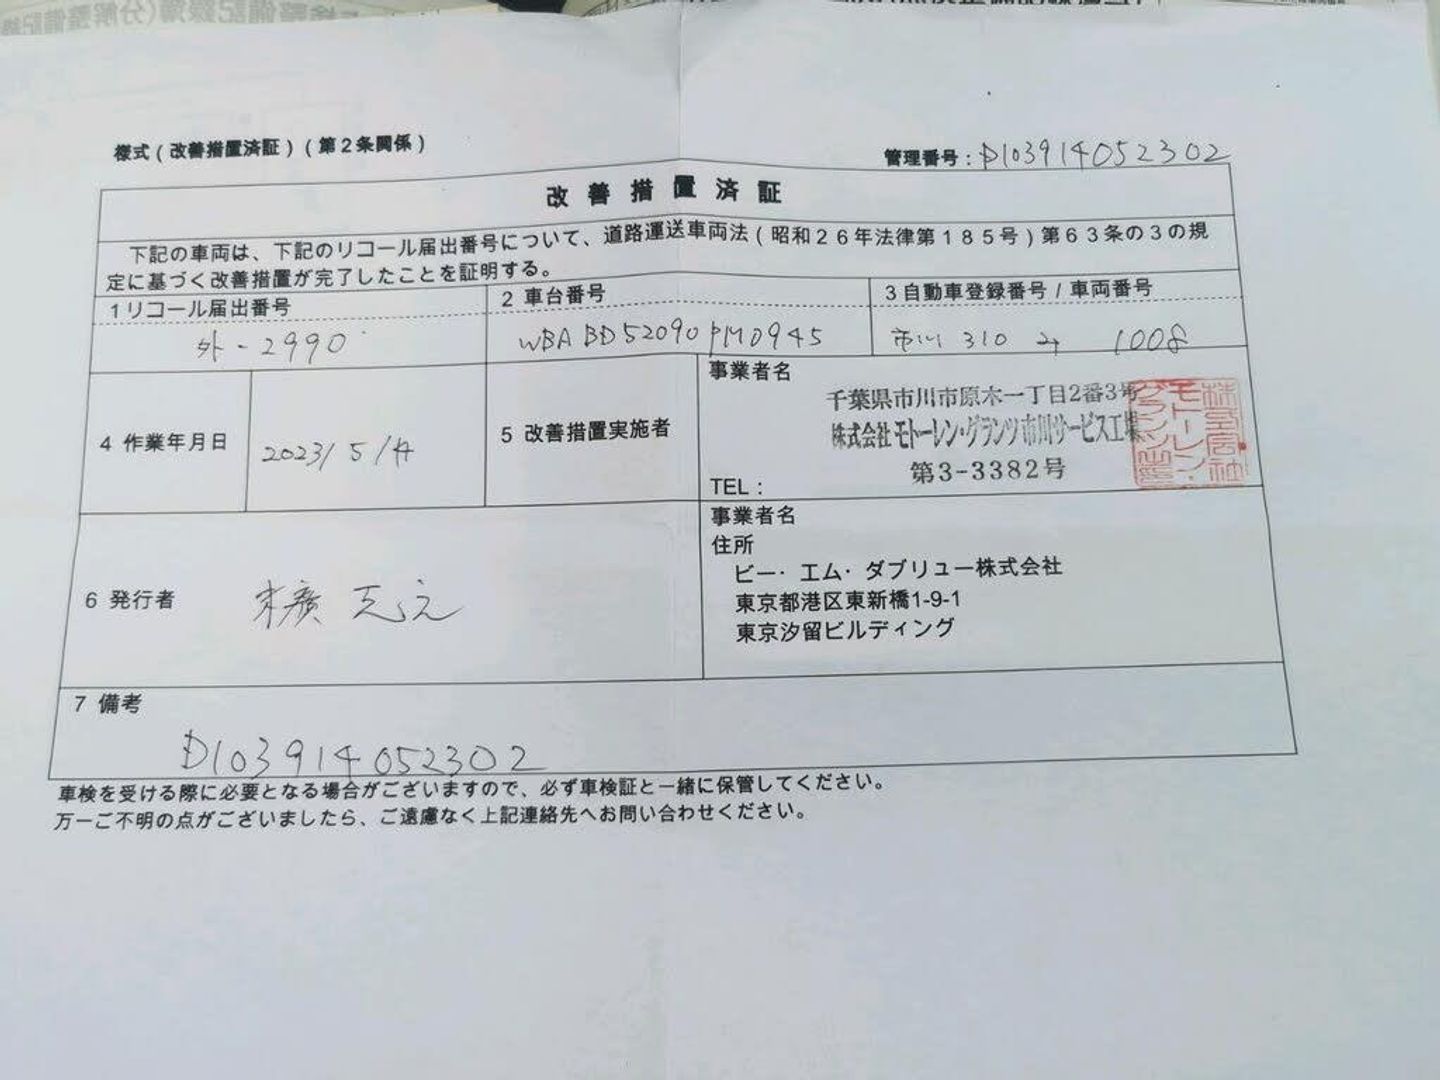 様式(改善措置済証)(第2条関係)
管理番号:D103914052302
改善措置済証
下記の車両は、下記のリコール届出番号について、道路運送車両法(昭和26年法律第185号)第63条の3の規
定に基づく改善措置が完了したことを証明する。
1リコール届出番号
2 車台番号
3自動車登録番号/車両番号
外-2990
WBABD52090PM0945
市川 310 1008
4 作業年月日
2023/5/14
5 改善措置実施者
事業者名
千葉県市川市原木一丁目2番3号
株式会社モトーレン・グランツ市川サービス工場
第3-3382号
TEL:
株式会社
モトーレン・
グランツ
6 発行者
事業者名
住所
ビー・エム・ダブリュー株式会社
東京都港区東新橋1-9-1
東京汐留ビルディング
7 備考
D103914052302
車検を受ける際に必要となる場合がございますので、必ず車検証と一緒に保管してください。
万一ご不明の点がございましたら、ご遠慮なく上記連絡先へお問い合わせください。